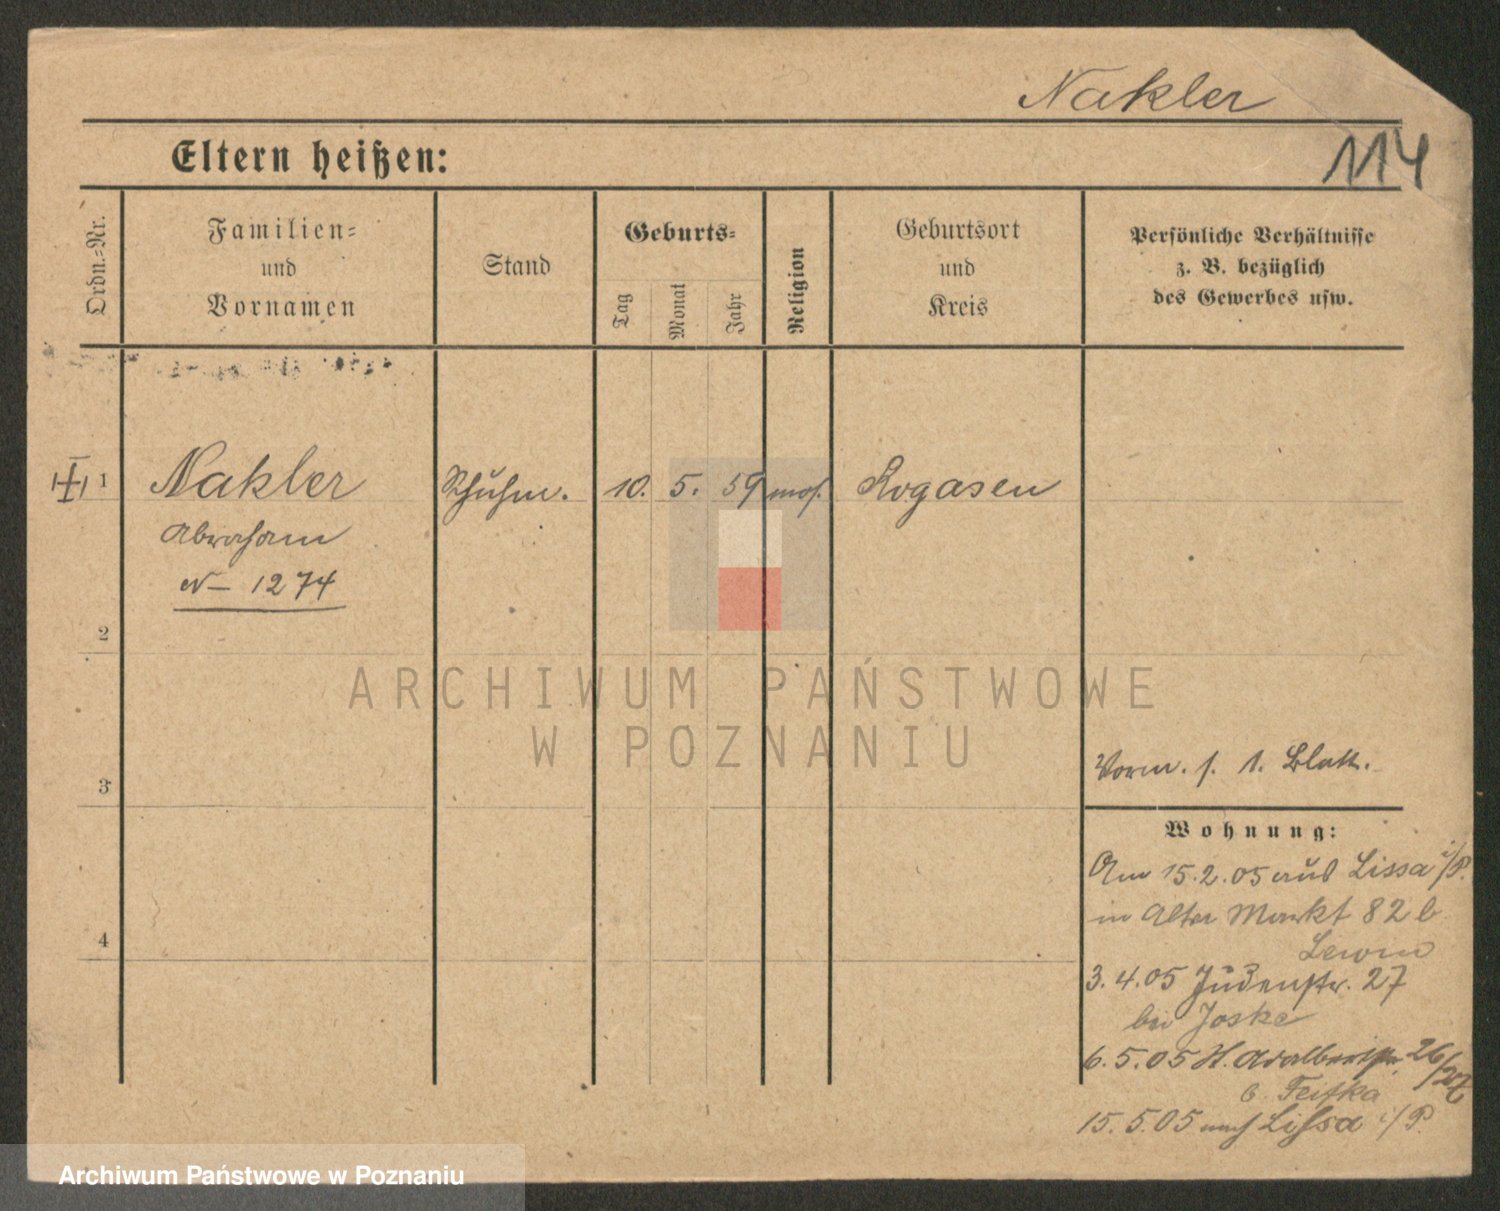 Nakler
114
Eltern heißen:
Ordn.-Nr.
Familien-
und
Vornamen
Stand
Geburts-
Tag
Monat
Jahr
Religion
Geburtsort
und
Kreis
Persönliche Verhältnisse
z. B. bezüglich
des Gewerbes usw.
1 Nakler Schuhm. 10. 5. 59 mos. Rogasen
Abraham
N– 1274
2
ARCHIWUM PAŃSTWOWE
W POZNANIU
Vorm. s. 1. Blatt.
3
Wohnung:
Am 15.2.05 aus Lissa i/P.
in Alter Markt 82 b
Lewin
4
3.4.05 Judenstr. 27
bei Joske
6.5.05 H. Adalbertstr. 26/27
b. Feifka
15.5.05 nach Lissa i/P.
Archiwum Państwowe w Poznaniu